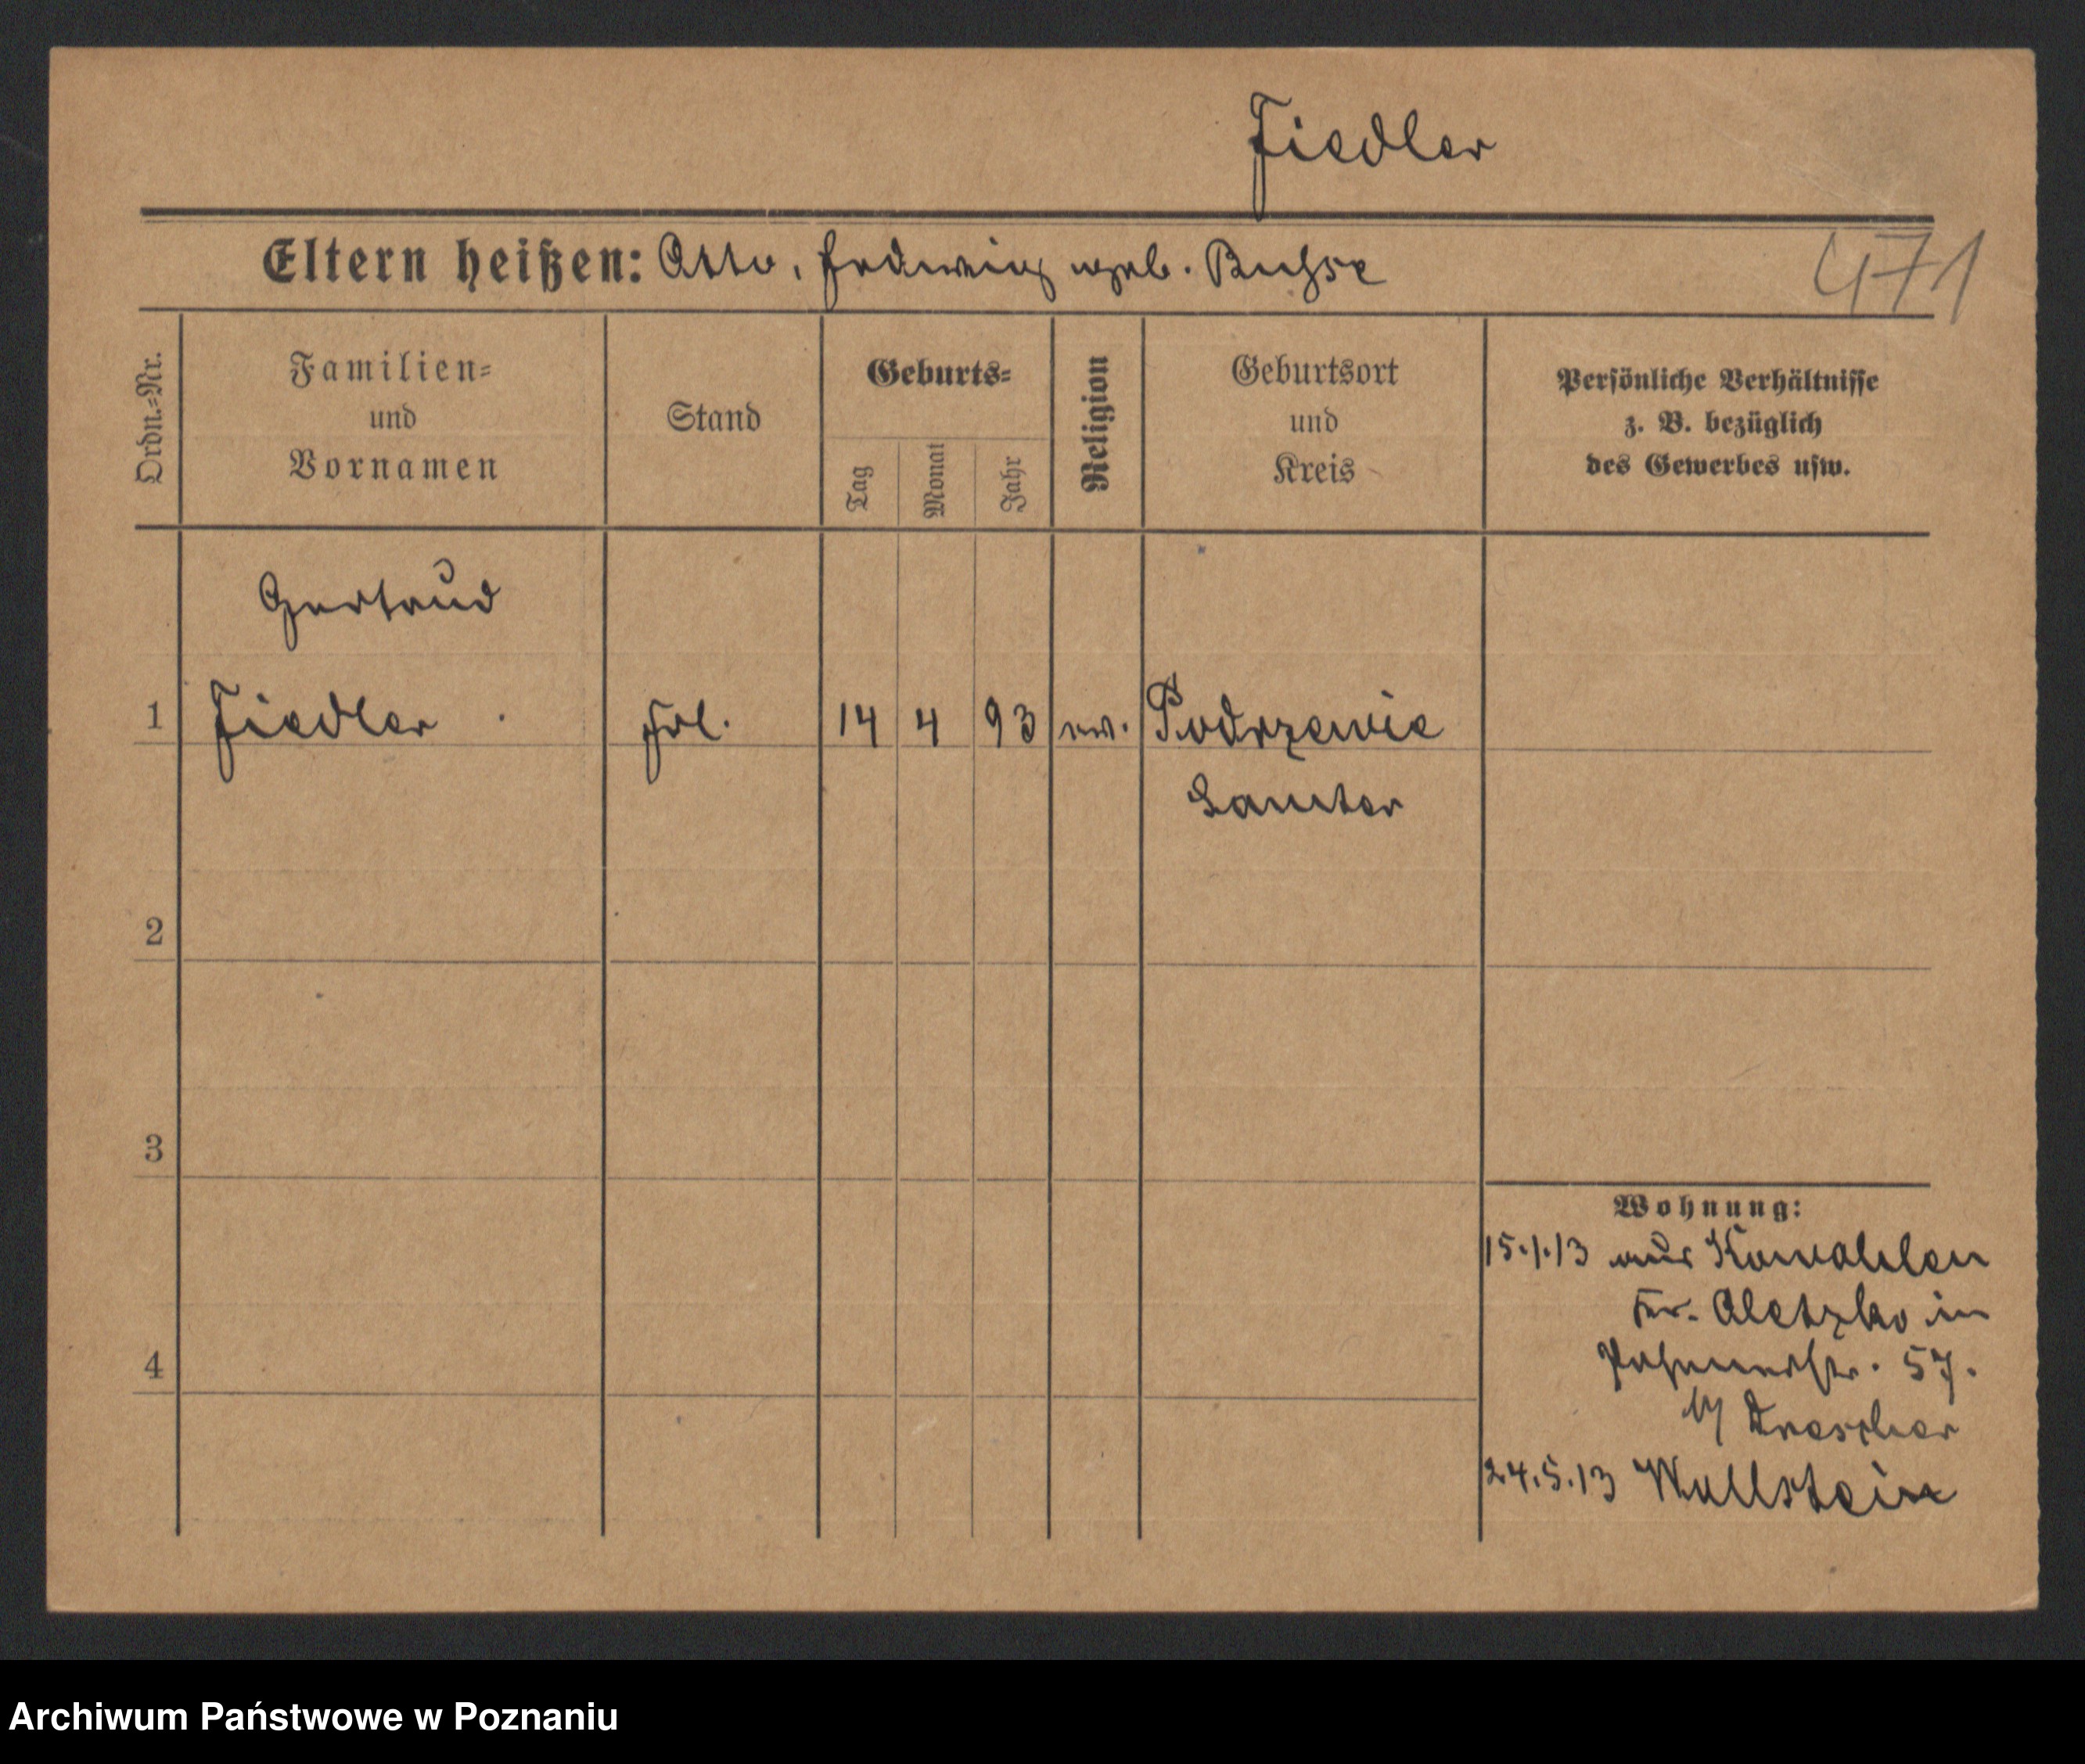 Fiedler
Eltern heißen: Otto, Hedwig geb. Buhse
471
Ordn.=Nr.
Familien=
und
Vornamen
Stand
Geburts=
Tag
Monat
Jahr
Religion
Geburtsort
und
Kreis
Persönliche Verhältnisse
z. B. bezüglich
des Gewerbes usw.
Gertrud
1 Fiedler Frl. 14 4 93 ev. Podrzewie
Samter
2
3
4
Wohnung:
15.1.13 aus Kowahlen
Kr. Oletzko in
Posenerstr. 57.
b/ Drescher
24.5.13 Wollstein
Archiwum Państwowe w Poznaniu